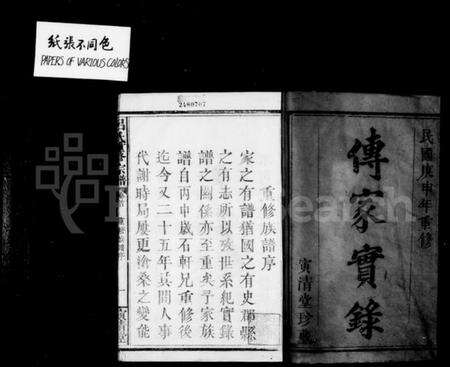 紙張不同色
PAPERS OF VARIOUS COLORS
2480707
民國庚申年重修
傳家實錄
寅清堂珍藏
重修族譜序
家之有譜猶國之有史郡縣
之有志所以殘世系紀實錄
譜之關係亦至重矣予家族
譜自丙申歲石軒兄重修後
迄今又二十五年其間人事
代謝時局屢更滄桑之變能